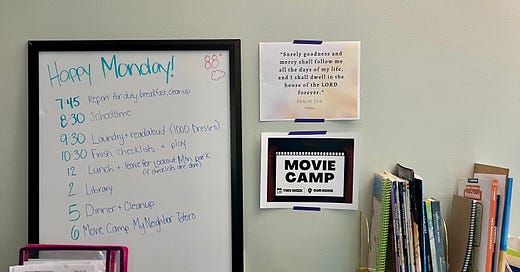 Happy Monday!
88°
7:45 Report for duty, breakfast, cleanup
8:30 Schooltime
9:30 Laundry + readaloud (1000 Dresses)
10:30 Finish checklists + play
12 Lunch + leave for Lookout Mtn park
(if checklists are done)
2 Library
5 Dinner + Cleanup
6 Movie Camp My Neighbor Totoro
"Surely goodness and
mercy shall follow me
all the days of my life,
and I shall dwell in the
house of the LORD
forever."
PSALM 23:6
MOVIE
CAMP
THIS WEEK OUR HOME